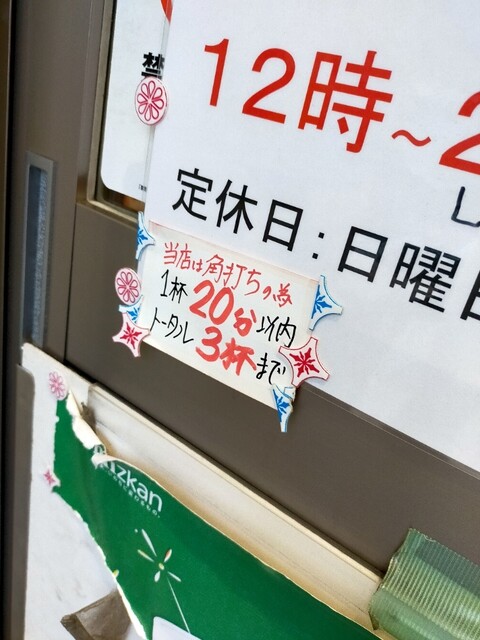 禁
12時~2
定休日:日曜日
当店は角打ちの為
1杯20分以内
トータル3杯まで
izkan